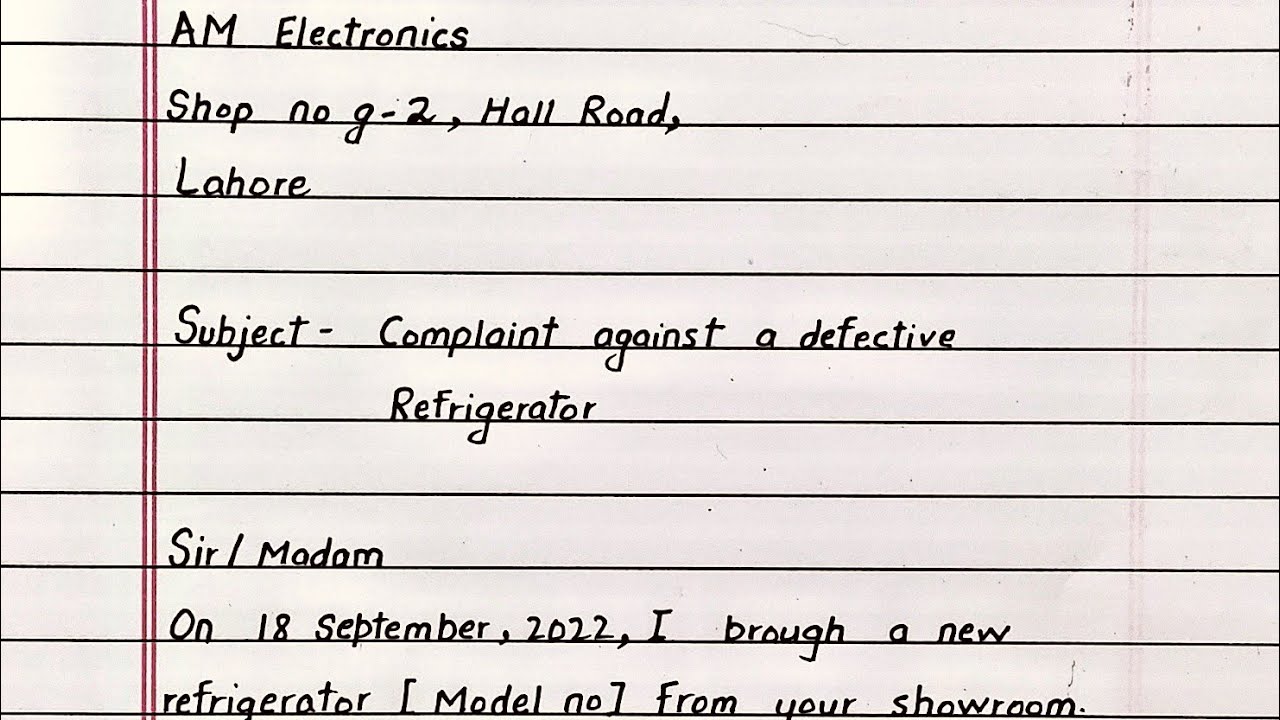 AM Electronics
Shop no g-2, Hall Road,
Lahore
Subject- Complaint against a defective
Refrigerator
Sir / Madam
On 18 september, 2022, I brough a new
refrigerator [ Model no] from your showroom.